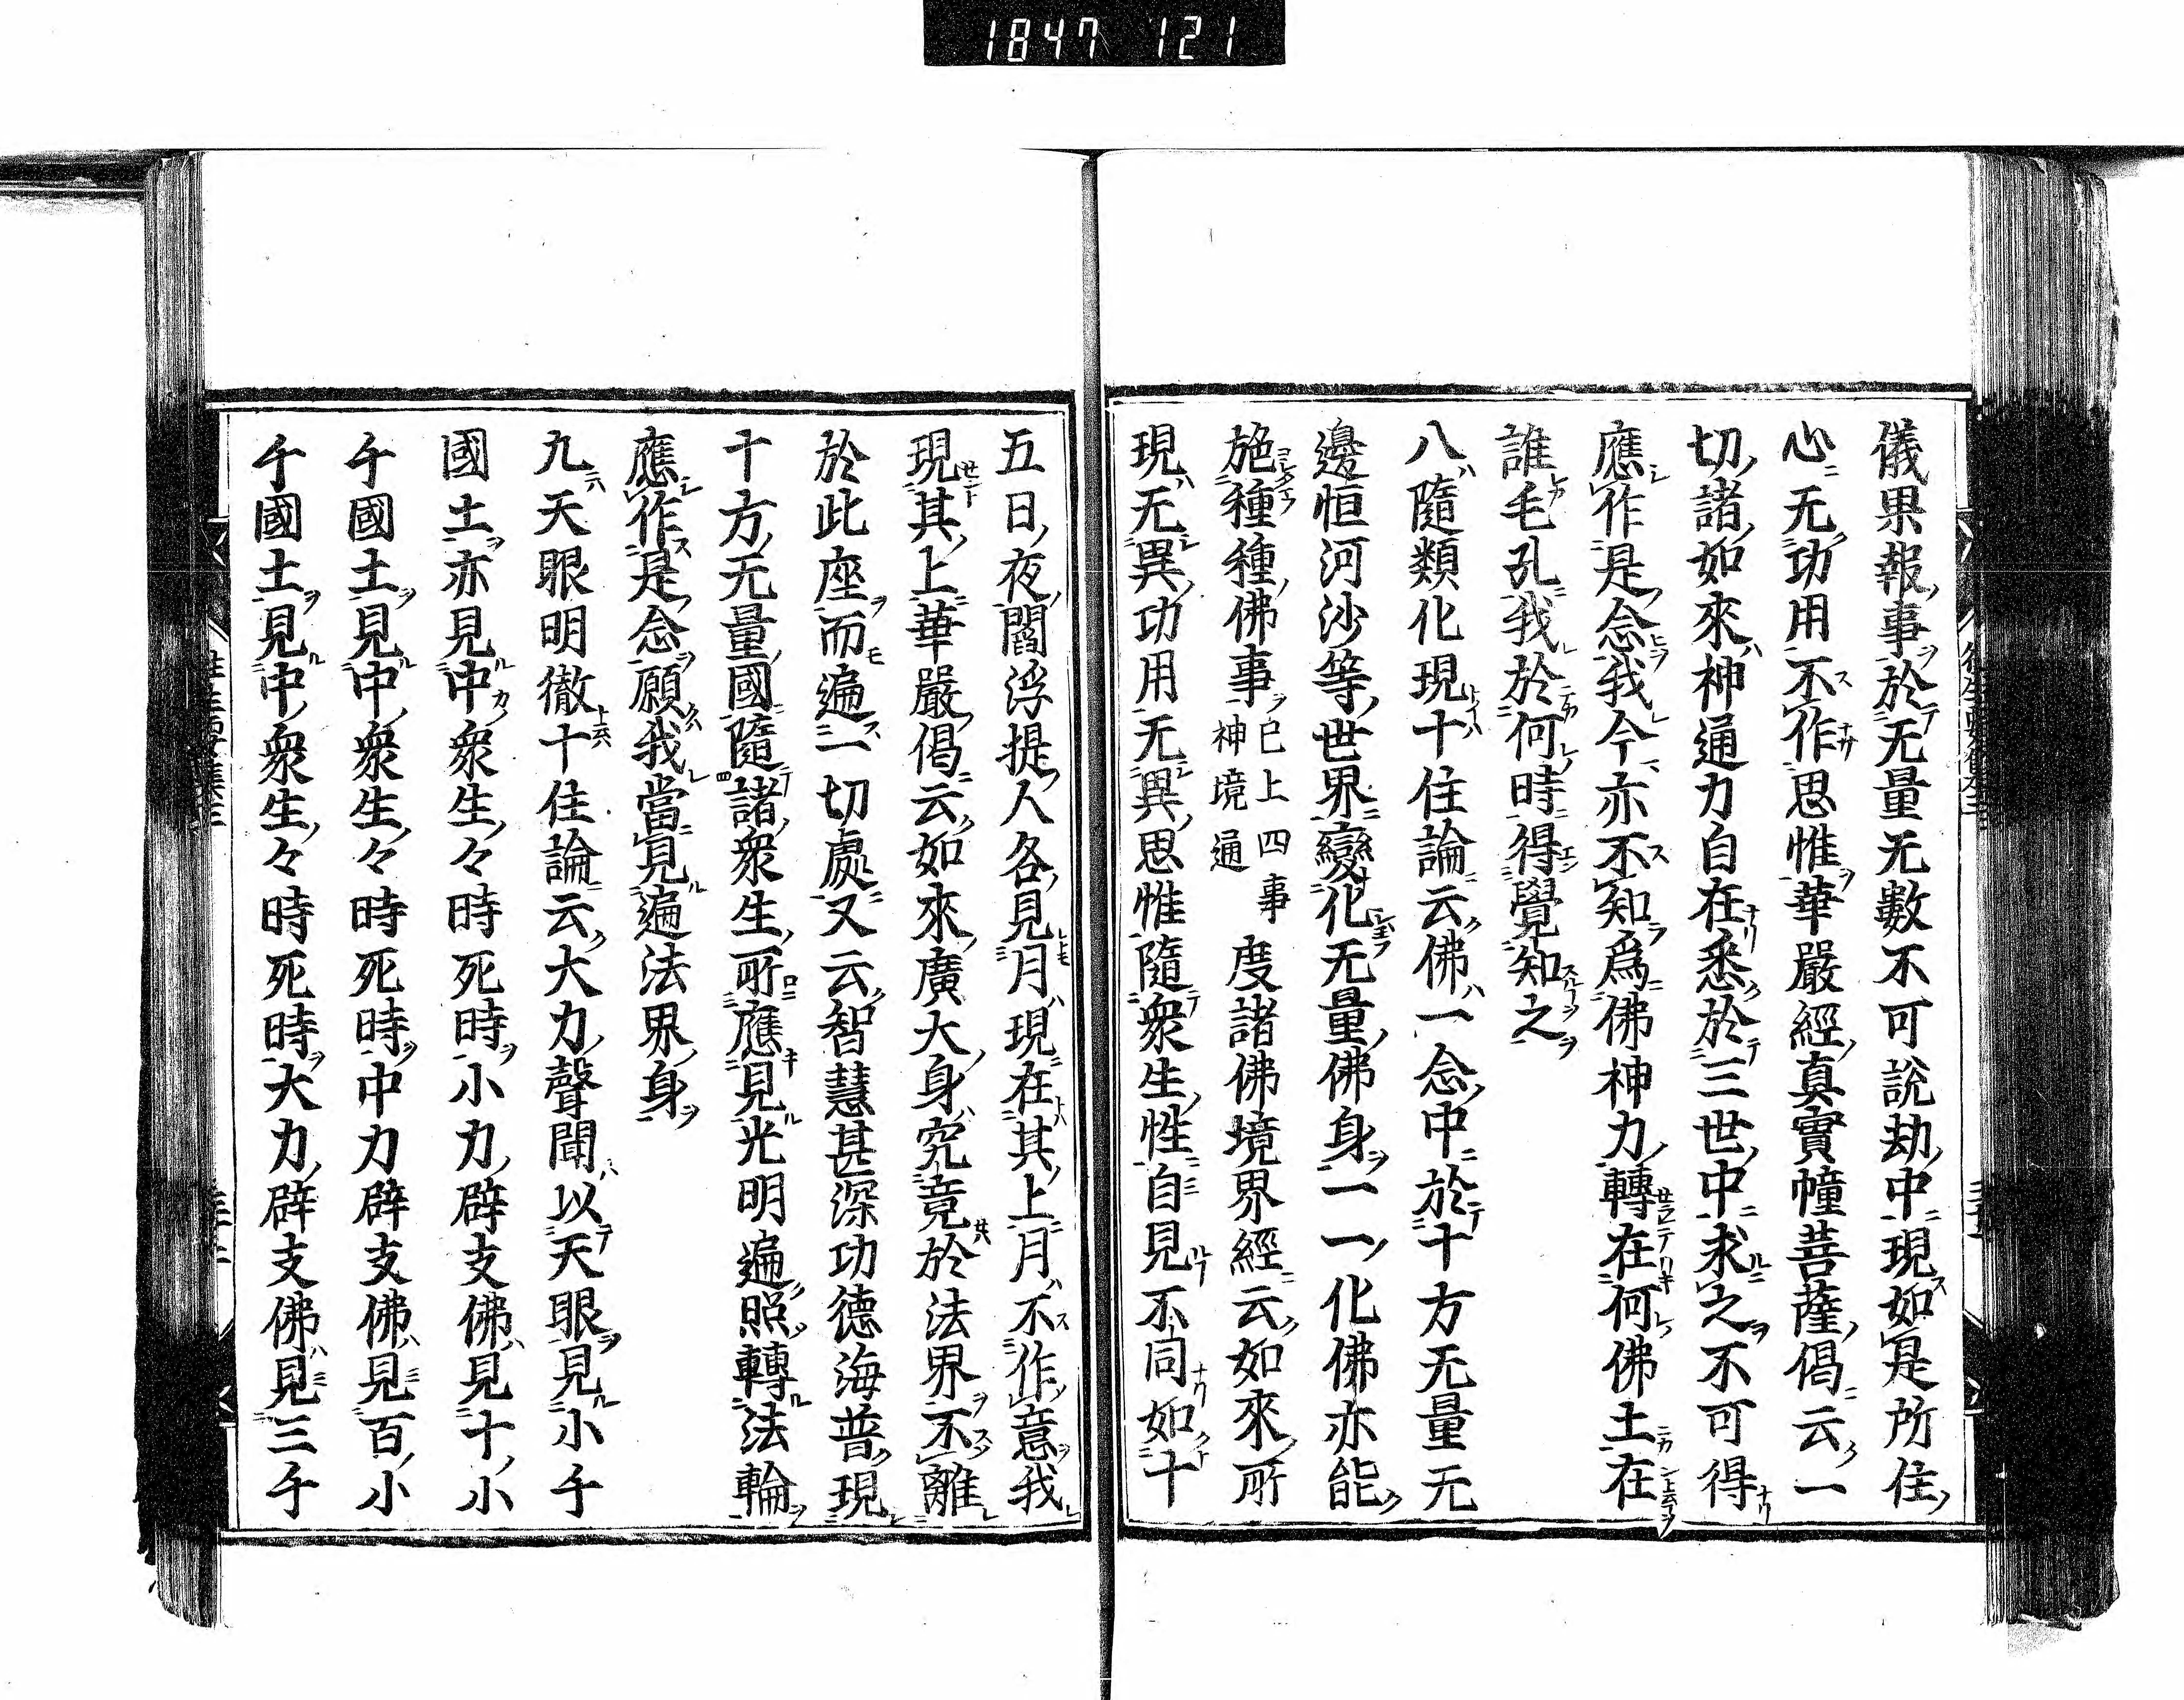 1847 121
儀果報事於无量无數不可説劫中現如是所住
心无功用不作思惟華嚴經真實幢菩薩偈云一
切諸如來神通力自在悉於三世中求之不可得
應作是念我今亦不知爲佛神力轉在何佛土在
誰毛孔我於何時得覺知之
八隨類化現十住論云佛一念中於十方无量无
邊恒河沙等世界變化无量佛身一一化佛亦能
施種種佛事已上四事神境通度諸佛境界經云如來所
現无異功用无異思惟隨衆生性自見不同如十
五日夜閻浮提人各見月現在其上月不作意我
現其上華嚴偈云如來廣大身究竟於法界不離
於此座而遍一切處又云智慧甚深功德海普現
十方无量國隨諸衆生所應見光明遍照轉法輪
應作是念願我當見遍法界身
九天眼明徹十住論云大力聲聞以天眼見小千
國土亦見中衆生々時死時小力辟支佛見十小
千國土見中衆生々時死時中力辟支佛見百小
千國土見中衆生々時死時大力辟支佛見三千